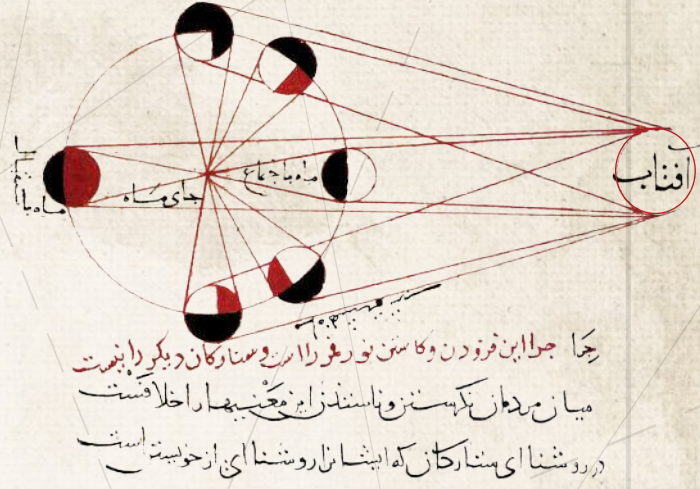 افتاب
ماه باجتماع
جای ماه
ماه با
جرا جرا این فزودن وکاستن نور قمر راست وستارکان دیکر را نیست
میان مردمان نکرستن این معنیها را خلافست
در روشنا ای ستارکان که ایشانرا روشنا ای از خویشتن است